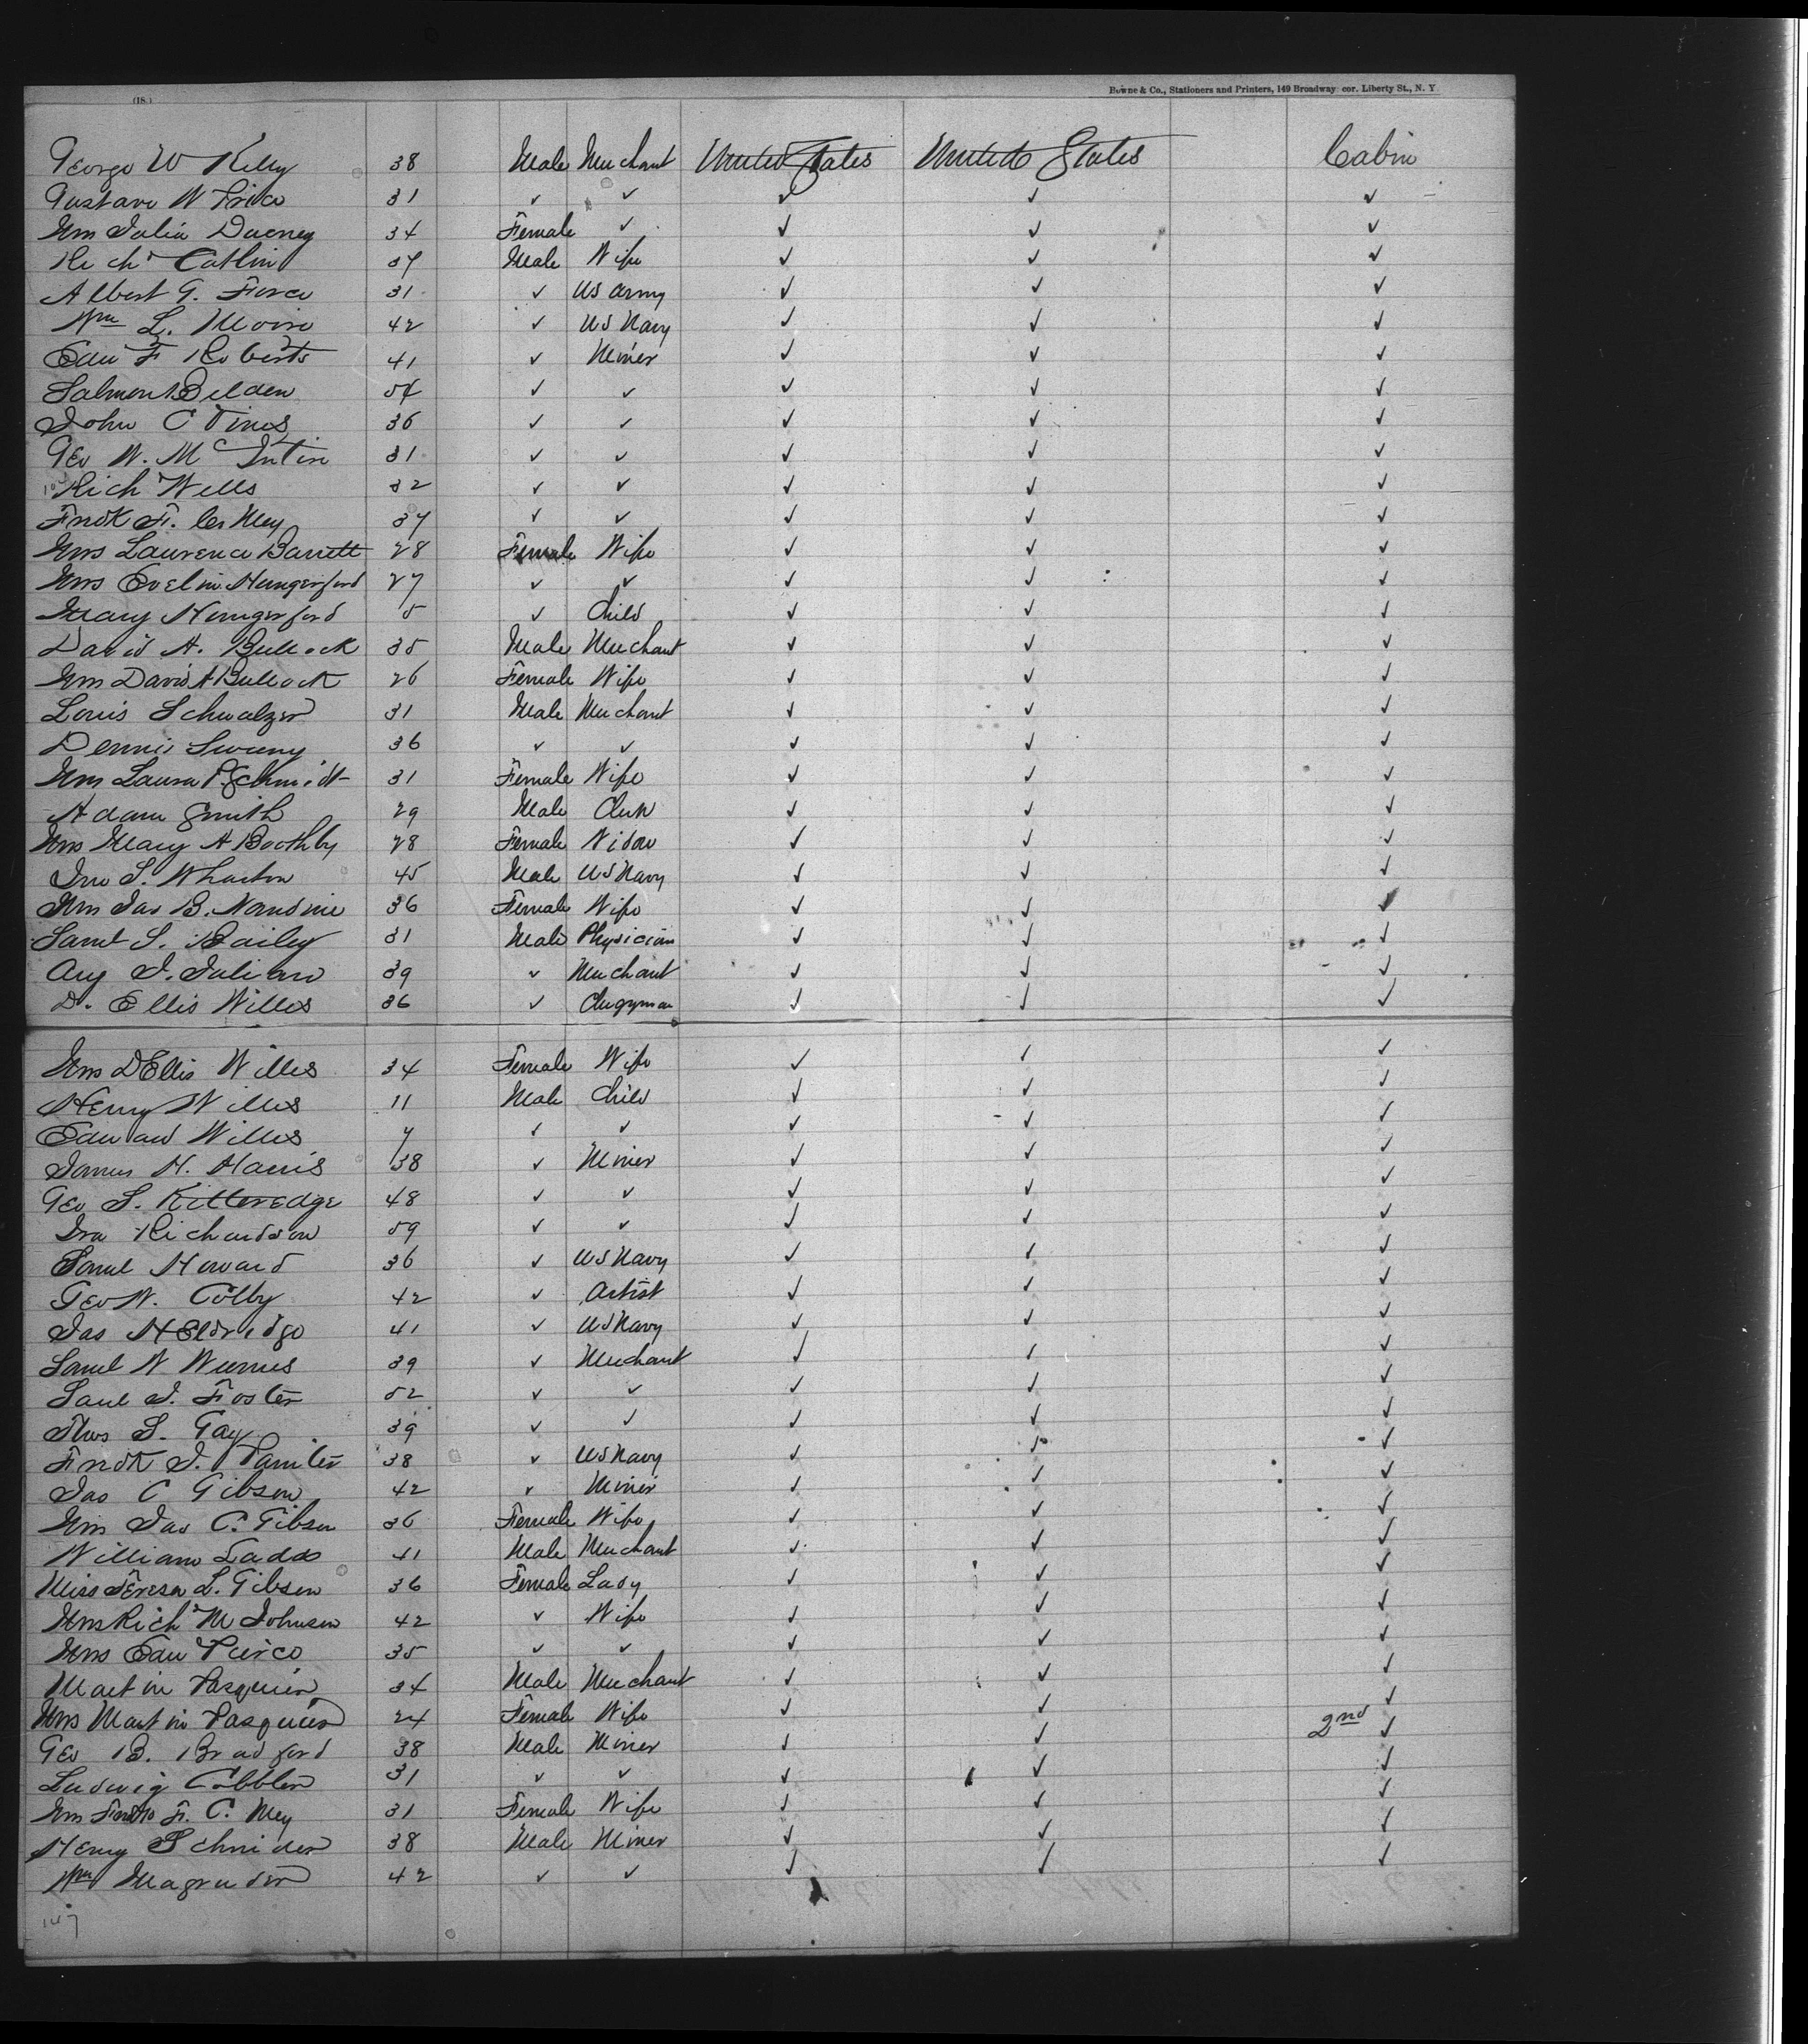 (18.)
Bowne & Co., Stationers and Printers, 149 Broadway cor. Liberty St., N. Y.
George W Kelly 38 Male Merchant United States United States Cabin
Gustave W Price 31 ✓ ✓ ✓ ✓ ✓
Mrs Julia 34 Female ✓ ✓ ✓ ✓
Richd Catlin 37 Male Wife ✓ ✓ ✓
Albert G. Force 31 ✓ US Army ✓ ✓ ✓
Wm L. 42 ✓ US Navy ✓ ✓ ✓
Edw F Roberts 41 ✓ Miner ✓ ✓ ✓
Salmon Belden 54 ✓ ✓ ✓ ✓ ✓
John C Vines 36 ✓ ✓ ✓ ✓ ✓
Geo W. Mc Intire 31 ✓ ✓ ✓ ✓ ✓
Rich Wells 32 ✓ ✓ ✓ ✓ ✓
Fredk F. C. Mey 37 ✓ ✓ ✓ ✓ ✓
Mrs Laurence Barrett 28 Female Wife ✓ ✓ ✓
Mrs Eveline Hungerford 27 ✓ ✓ ✓ ✓ ✓
Mary Hungerford 5 ✓ Child ✓ ✓ ✓
David A. Bullock 35 Male Merchant ✓ ✓ ✓
Mrs David A Bullock 26 Female Wife ✓ ✓ ✓
Louis Schwalzer 31 Male Merchant ✓ ✓ ✓
Dennis Sweeny 36 ✓ ✓ ✓ ✓ ✓
Mrs Laura P. Schmidt 31 Female Wife ✓ ✓ ✓
Adam Smith 29 Male Clerk ✓ ✓ ✓
Mrs Mary A Boothby 28 Female Widow ✓ ✓ ✓
Jno S. Wharton 45 Male US Navy ✓ ✓ ✓
Mrs Jas B. 36 Female Wife ✓ ✓ ✓
Saml S. Bailey 31 Male Physician ✓ ✓ ✓
Aug J. Julian 39 ✓ Merchant ✓ ✓ ✓
D. Ellis Willes 36 ✓ Clergyman ✓ ✓ ✓
Mrs D Ellis Willes 34 Female Wife ✓ ✓ ✓
Henry Willes 11 Male Child ✓ ✓ ✓
Edward Willes 7 ✓ ✓ ✓ ✓ ✓
James H. Harris 38 ✓ Miner ✓ ✓ ✓
Geo S. Kitteredge 48 ✓ ✓ ✓ ✓ ✓
Ira Richardson 59 ✓ ✓ ✓ ✓ ✓
Saml Howard 36 ✓ US Navy ✓ ✓ ✓
Geo W. Colby 42 ✓ Artist ✓ ✓ ✓
Jas H Eldridge 41 ✓ US Navy ✓ ✓ ✓
Saml W 39 ✓ Merchant ✓ ✓ ✓
Saml J. Foster 52 ✓ ✓ ✓ ✓ ✓
Thos S. Gay 39 ✓ ✓ ✓ ✓ ✓
Fredk J. Painter 38 ✓ US Navy ✓ ✓ ✓
Jas C Gibson 42 ✓ Miner ✓ ✓ ✓
Mrs Jas C. Gibson 36 Female Wife ✓ ✓ ✓
William Ladd 41 Male Merchant ✓ ✓ ✓
Miss Teresa L. Gibson 36 Female Lady ✓ ✓ ✓
Mrs Richd M Johnson 42 ✓ Wife ✓ ✓ ✓
Mrs Edw Peirce 35 ✓ ✓ ✓ ✓ ✓
Martin Pasquier 34 Male Merchant ✓ ✓ ✓
Mrs Martin Pasquier 24 Female Wife ✓ ✓ ✓
Geo B. Bradford 38 Male Miner ✓ ✓ 2nd ✓
Ludwig Cobbler 31 ✓ ✓ ✓ ✓ ✓
Mrs Fredk F. C. Mey 31 Female Wife ✓ ✓ ✓
Henry Schnider 38 Male Miner ✓ ✓ ✓
Wm Magruder 42 ✓ ✓ ✓ ✓ ✓
147